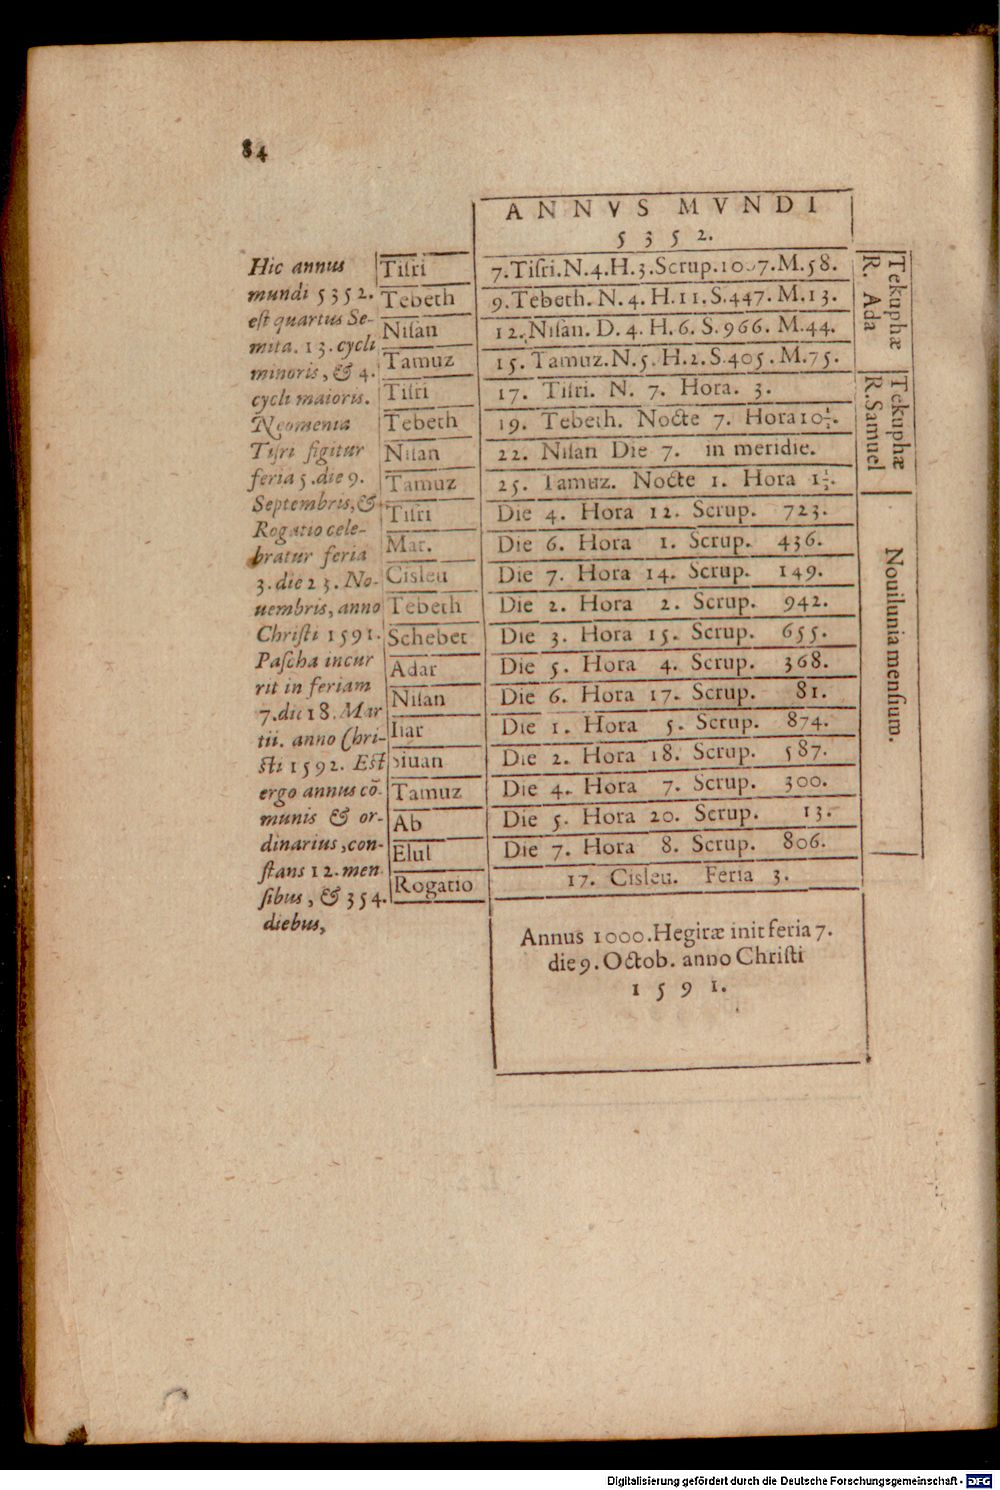 84
ANNVS MVNDI
5352.
Hic annus
mundi 5352.
eſt quartus Se-
mita. 13. cycli
minoris, & 4.
cycli maioris.
Neomenia
Tiſri figitur
feria 5. die 9.
Septembris, &
Rogatio cele-
bratur feria
3. die 23. No-
uembris, anno
Chriſti 1591.
Paſcha incur
rit in feriam
7. die 18. Mar
tii. anno Chri-
ſti 1592. Eſt
ergo annus cō-
munis & or-
dinarius, con-
ſtans 12. men
ſibus, & 354.
diebus,
Tiſri 7. Tiſri. N. 4. H. 3. Scrup. 1007. M. 58.
Tebeth 9. Tebeth. N. 4. H. 11. S. 447. M. 13.
Niſan 12. Niſan. D. 4. H. 6. S. 966. M. 44.
Tamuz 15. Tamuz. N. 5. H. 2. S. 405. M. 75.
Tiſri 17. Tiſri. N. 7. Hora. 3.
Tebeth 19. Tebeth. Nocte 7. Hora 10 1/2.
Niſan 22. Niſan Die 7. in meridie.
Tamuz 25. Tamuz. Nocte 1. Hora 1 1/2.
Tiſri Die 4. Hora 12. Scrup. 723.
Mar. Die 6. Hora 1. Scrup. 436.
Cisleu Die 7. Hora 14. Scrup. 149.
Tebeth Die 2. Hora 2. Scrup. 942.
Schebet Die 3. Hora 15. Scrup. 655.
Adar Die 5. Hora 4. Scrup. 368.
Niſan Die 6. Hora 17. Scrup. 81.
Iiar Die 1. Hora 5. Scrup. 874.
Siuan Die 2. Hora 18. Scrup. 587.
Tamuz Die 4. Hora 7. Scrup. 300.
Ab Die 5. Hora 20. Scrup. 13.
Elul Die 7. Hora 8. Scrup. 806.
Rogatio 17. Cisleu. Feria 3.
Tekuphæ
R. Ada
Tekuphæ
R. Samuel
Nouilunia menſium.
Annus 1000. Hegiræ init feria 7.
die 9. Octob. anno Chriſti
1591.
Digitalisierung gefördert durch die Deutsche Forschungsgemeinschaft - DFG